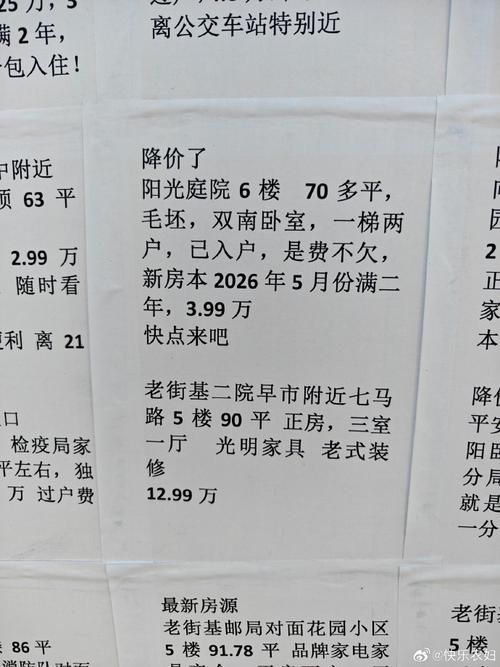 25万，3
满 2 年，
包入住！
离公交车站特别近
中附近
63 平
2.99 万
随时看
便利 离 21
口
检疫局家
平左右，独
万 过户费
降价了
阳光庭院 6 楼 70 多平，
毛坯，双南卧室，一梯两
户，已入户，是费不欠，
新房本 2026 年 5 月份满二
年，3.99 万
快点来吧
老街基二院早市附近七马
路 5 楼 90 平 正房，三室
一厅 光明家具 老式装
修
12.99 万
阳
园
2
正
家
本
降价
平安
阳卧
分局
就是
一分
楼 86 平
消防队对面
最新房源
老街基邮局对面花园小区
5 楼 91.78 平 品牌家电家
老街
5 楼
@快乐农妇